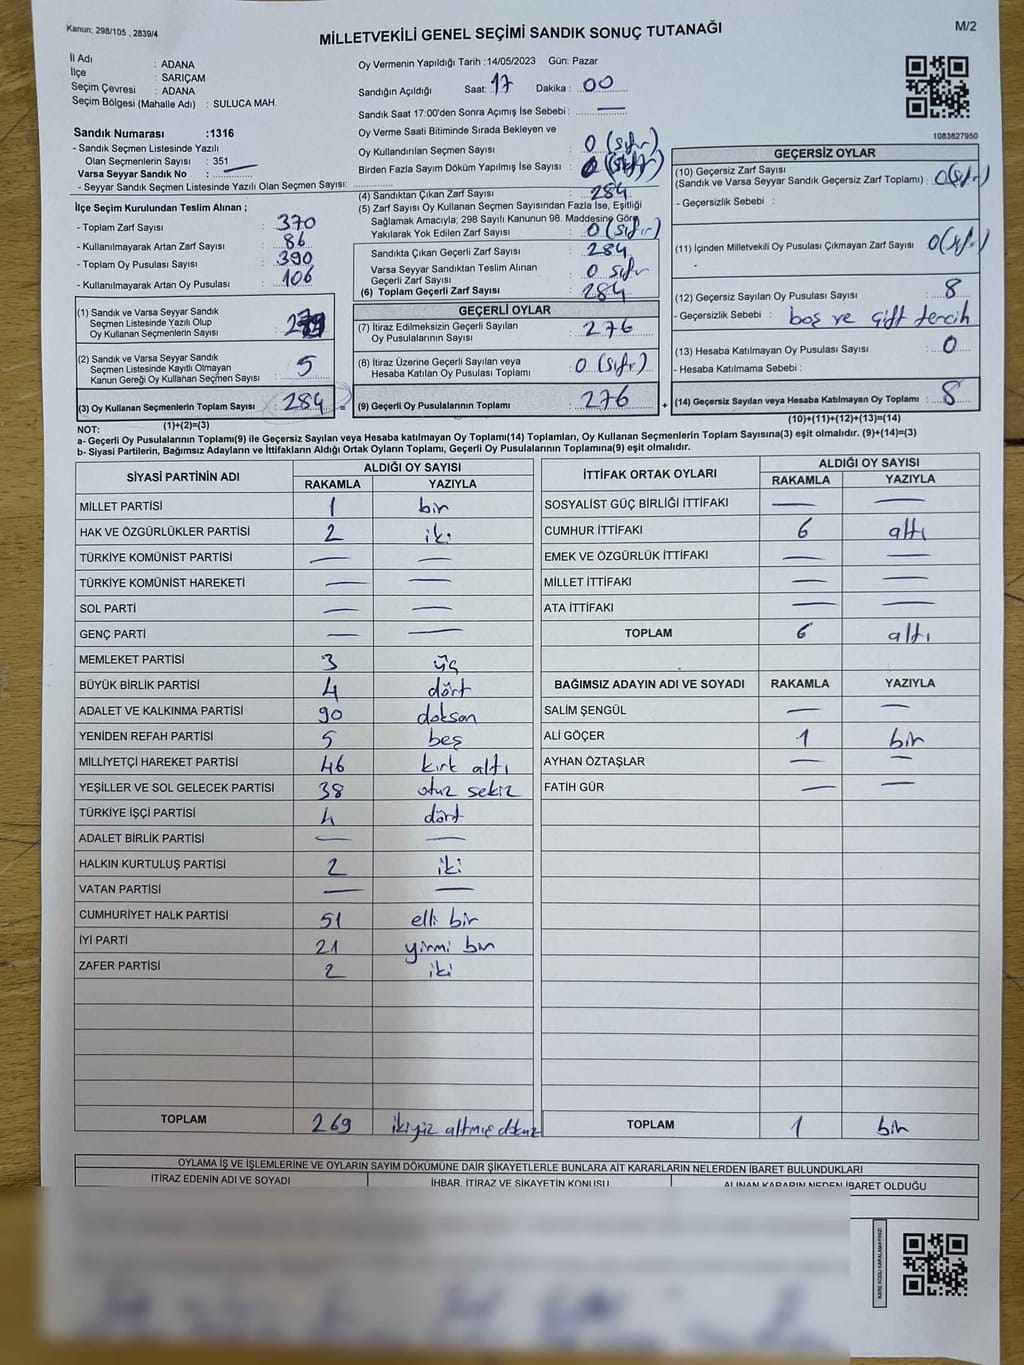 Kanun; 298/105 , 2839/4
MİLLETVEKİLİ GENEL SEÇİMİ SANDIK SONUÇ TUTANAĞI
M/2
İl Adı : ADANA
İlçe : SARIÇAM
Seçim Çevresi : ADANA
Seçim Bölgesi (Mahalle Adı) : SULUCA MAH.
Sandık Numarası :1316
- Sandık Seçmen Listesinde Yazılı
Olan Seçmenlerin Sayısı : 351
Varsa Seyyar Sandık No :
- Seyyar Sandık Seçmen Listesinde Yazılı Olan Seçmen Sayısı:
İlçe Seçim Kurulundan Teslim Alınan ;
- Toplam Zarf Sayısı : 370
- Kullanılmayarak Artan Zarf Sayısı : 86
- Toplam Oy Pusulası Sayısı : 390
- Kullanılmayarak Artan Oy Pusulası : 106
(1) Sandık ve Varsa Seyyar Sandık
Seçmen Listesinde Yazılı Olup
Oy Kullanan Seçmenlerin Sayısı :
(2) Sandık ve Varsa Seyyar Sandık
Seçmen Listesinde Kayıtlı Olmayan
Kanun Gereği Oy Kullanan Seçmen Sayısı : 5
(3) Oy Kullanan Seçmenlerin Toplam Sayısı : 284
(1)+(2)=(3)
Oy Vermenin Yapıldığı Tarih :14/05/2023 Gün: Pazar
Sandığın Açıldığı Saat: 17 Dakika : 00
Sandık Saat 17:00'den Sonra Açımış İse Sebebi : —
Oy Verme Saati Bitiminde Sırada Bekleyen ve
Oy Kullandırılan Seçmen Sayısı : 0 (sıfır)
Birden Fazla Sayım Döküm Yapılmış İse Sayısı : 0 (sıfır)
(4) Sandıktan Çıkan Zarf Sayısı : 284
(5) Zarf Sayısı Oy Kullanan Seçmen Sayısından Fazla İse, Eşitliği
Sağlamak Amacıyla; 298 Sayılı Kanunun 98. Maddesine Göre
Yakılarak Yok Edilen Zarf Sayısı : 0 (sıfır)
Sandıkta Çıkan Geçerli Zarf Sayısı : 284
Varsa Seyyar Sandıktan Teslim Alınan
Geçerli Zarf Sayısı : 0 sıfır
(6) Toplam Geçerli Zarf Sayısı : 284
GEÇERLİ OYLAR
(7) İtiraz Edilmeksizin Geçerli Sayılan
Oy Pusulalarının Sayısı : 276
(8) İtiraz Üzerine Geçerli Sayılan veya
Hesaba Katılan Oy Pusulası Toplamı : 0 (sıfır)
= (9) Geçerli Oy Pusulalarının Toplamı : 276 +
1083827950
GEÇERSİZ OYLAR
(10) Geçersiz Zarf Sayısı
(Sandık ve Varsa Seyyar Sandık Geçersiz Zarf Toplamı) : 0(sıfır)
- Geçersizlik Sebebi :
(11) İçinden Milletvekili Oy Pusulası Çıkmayan Zarf Sayısı : 0(sıfır)
(12) Geçersiz Sayılan Oy Pusulası Sayısı : 8
- Geçersizlik Sebebi : boş ve çift tercih
(13) Hesaba Katılmayan Oy Pusulası Sayısı : 0
- Hesaba Katılmama Sebebi :
(14) Geçersiz Sayılan veya Hesaba Katılmayan Oy Toplamı : 8
(10)+(11)+(12)+(13)=(14)
NOT:
a- Geçerli Oy Pusulalarının Toplamı(9) ile Geçersiz Sayılan veya Hesaba katılmayan Oy Toplamı(14) Toplamları, Oy Kullanan Seçmenlerin Toplam Sayısına(3) eşit olmalıdır. (9)+(14)=(3)
b- Siyasi Partilerin, Bağımsız Adayların ve İttifakların Aldığı Ortak Oyların Toplamı, Geçerli Oy Pusulalarının Toplamına(9) eşit olmalıdır.
SİYASİ PARTİNİN ADI ALDIĞI OY SAYISI
RAKAMLA YAZIYLA
MİLLET PARTİSİ 1 bir
HAK VE ÖZGÜRLÜKLER PARTİSİ 2 iki
TÜRKİYE KOMÜNİST PARTİSİ — —
TÜRKİYE KOMÜNİST HAREKETİ — —
SOL PARTİ — —
GENÇ PARTİ — —
MEMLEKET PARTİSİ 3 üç
BÜYÜK BİRLİK PARTİSİ 4 dört
ADALET VE KALKINMA PARTİSİ 90 doksan
YENİDEN REFAH PARTİSİ 5 beş
MİLLİYETÇİ HAREKET PARTİSİ 46 kırk altı
YEŞİLLER VE SOL GELECEK PARTİSİ 38 otuz sekiz
TÜRKİYE İŞÇİ PARTİSİ 4 dört
ADALET BİRLİK PARTİSİ — —
HALKIN KURTULUŞ PARTİSİ 2 iki
VATAN PARTİSİ — —
CUMHURİYET HALK PARTİSİ 51 elli bir
İYİ PARTİ 21 yirmi bir
ZAFER PARTİSİ 2 iki
TOPLAM 269 ikiyüz altmış dokuz
İTTİFAK ORTAK OYLARI ALDIĞI OY SAYISI
RAKAMLA YAZIYLA
SOSYALİST GÜÇ BİRLİĞİ İTTİFAKI — —
CUMHUR İTTİFAKI 6 altı
EMEK VE ÖZGÜRLÜK İTTİFAKI — —
MİLLET İTTİFAKI — —
ATA İTTİFAKI — —
TOPLAM 6 altı
BAĞIMSIZ ADAYIN ADI VE SOYADI RAKAMLA YAZIYLA
SALİM ŞENGÜL — —
ALİ GÖÇER 1 bir
AYHAN ÖZTAŞLAR — —
FATİH GÜR — —
TOPLAM 1 bir
OYLAMA İŞ VE İŞLEMLERİNE VE OYLARIN SAYIM DÖKÜMÜNE DAİR ŞİKAYETLERLE BUNLARA AİT KARARLARIN NELERDEN İBARET BULUNDUKLARI
İTİRAZ EDENİN ADI VE SOYADI İHBAR, İTİRAZ VE ŞİKAYETİN KONUSU ALINAN KARARIN NEDEN İBARET OLDUĞU
KARE KODU KARALAMAYINIZ!